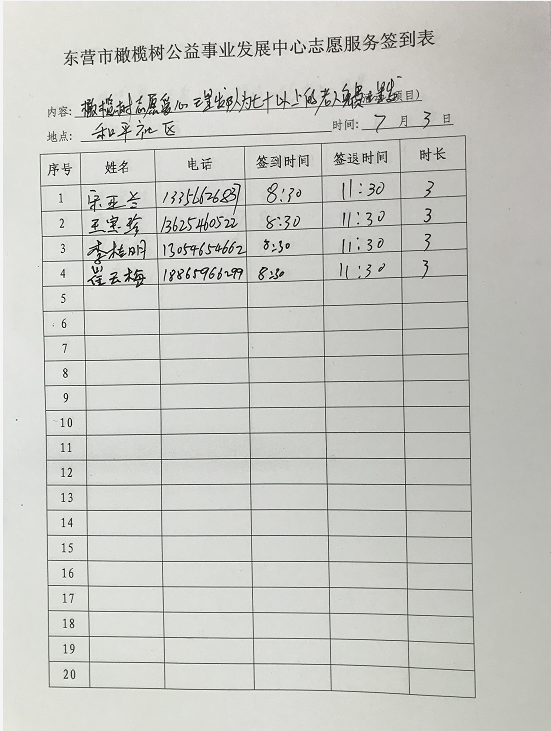 东营市橄榄树公益事业发展中心志愿服务签到表
内容：橄榄树志愿爱心理发队为七十以上的老人免费理发项目）
地点：和平社区 时间：7月3日
序号 姓名 电话 签到时间 签退时间 时长
1 宋亚兰 13356626837 8:30 11:30 3
2 王惠珍 13625460522 8:30 11:30 3
3 李桂明 13054654662 8:30 11:30 3
4 崔云梅 18865966299 8:30 11:30 3
5
6
7
8
9
10
11
12
13
14
15
16
17
18
19
20